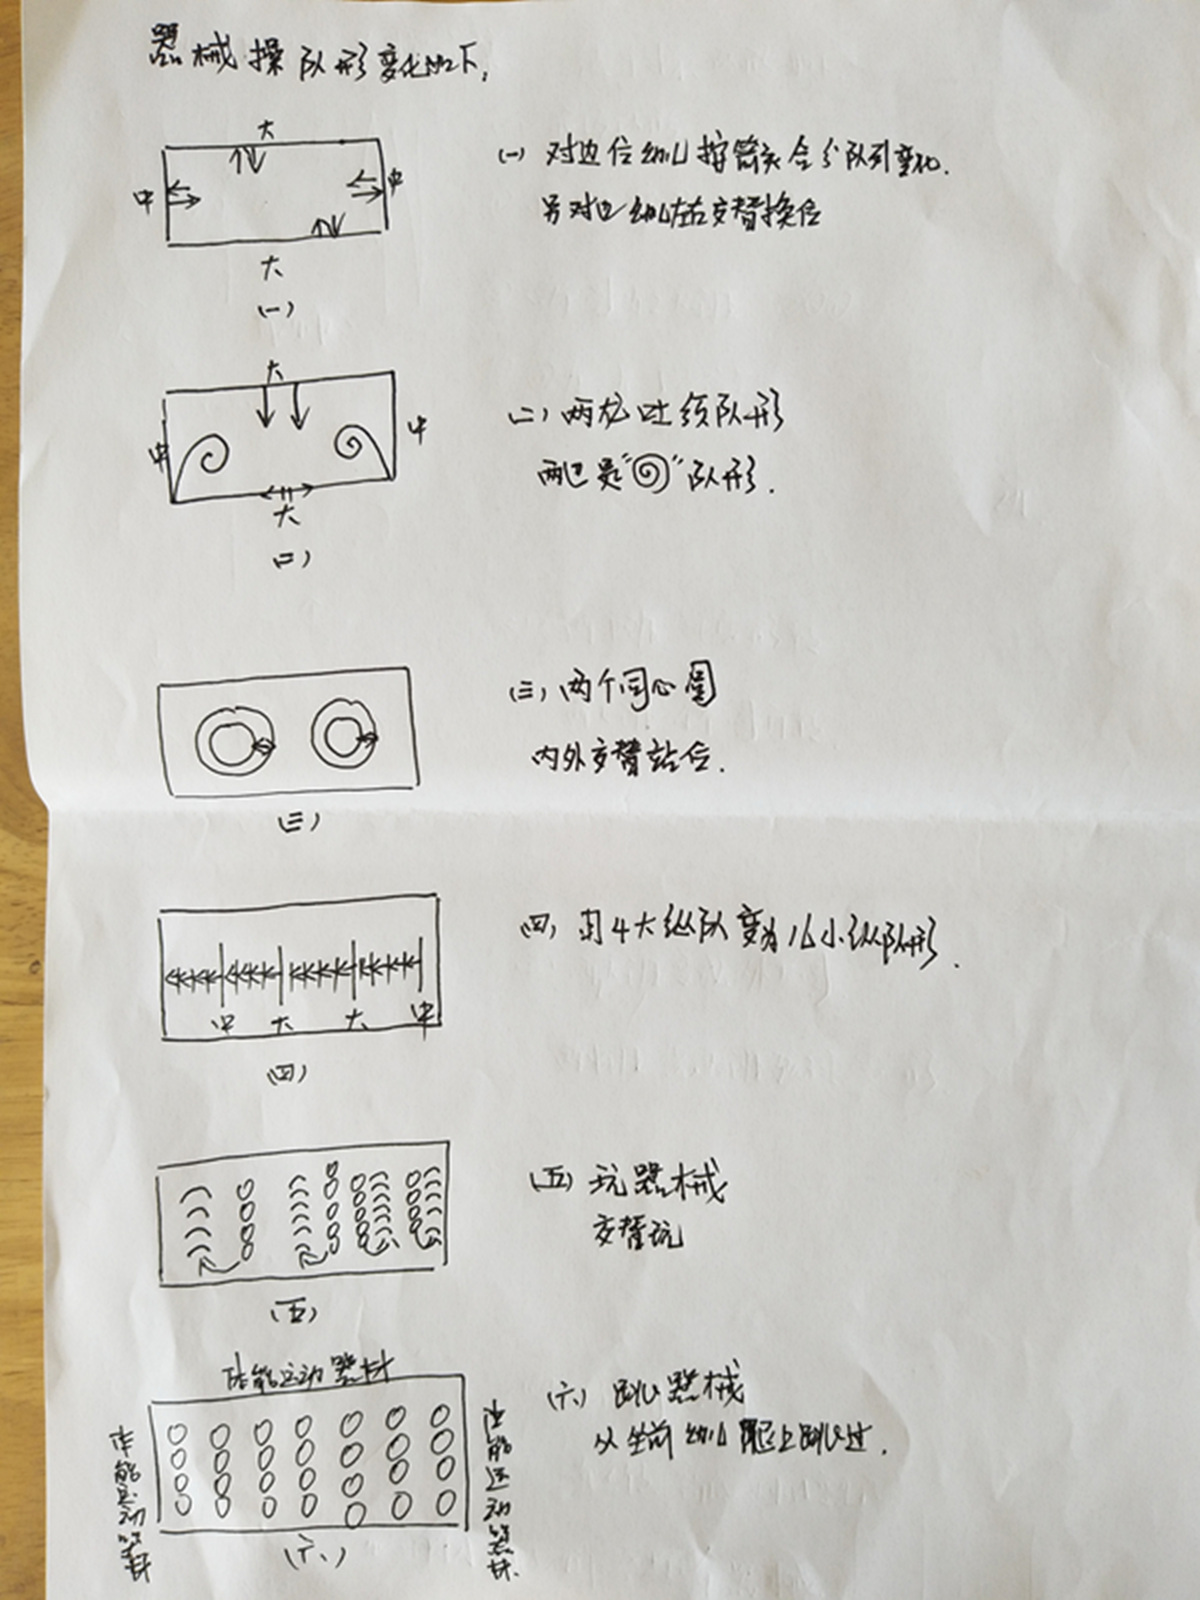 器械操队形变化如下,
大
中
中
大
(一)
(一) 对边位幼儿按箭头合分队列变化.
另对边幼儿左右交替换位
大
中
中
大
(二)
(二) 两龙吐须队形
两边是“ ”队形.
(三) 两个同心圆
内外交替站位.
(三)
(四) 由4大纵队变为16小纵队形.
中 大 大 中
(四)
(五) 玩器械
交替玩
(五)
体能运动器材
体能运动器材
体能运动器材.
(六) 跳器械
从坐前幼儿腿上跳过.
(六)